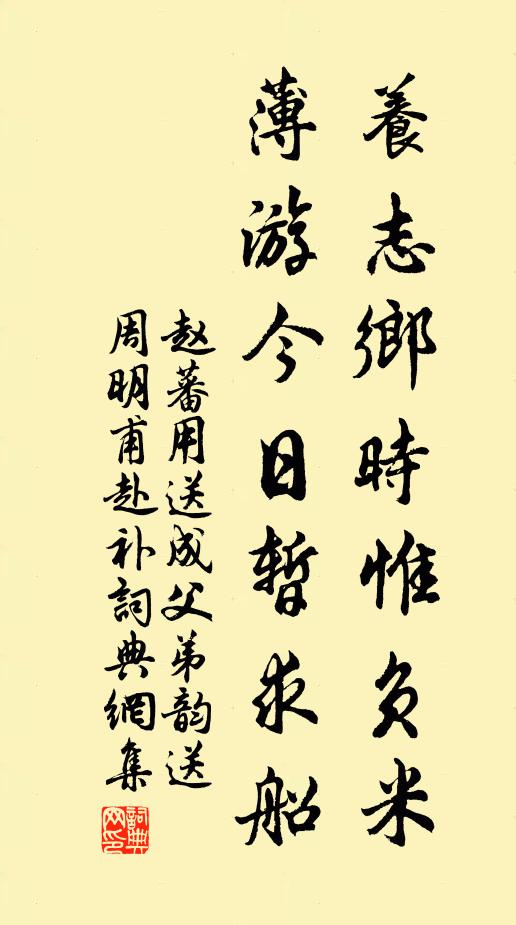 養志鄉時惟負米
薄游今日暫求船
赵蕃用送成父弟韵送
周明甫赴补詞典網集
詞典网印